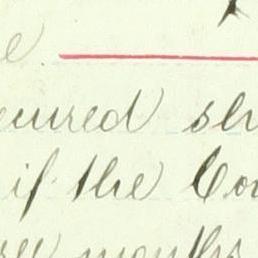 e
cured sh
if the Cou
ree months